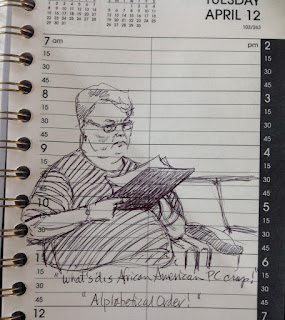 TUESDAY
APRIL 12
103/263
7 am
pm 2
15 15
30 30
45 45
8 3
15 15
30 30
45 45
9 4
15 15
30 30
45 45
10 5
15 15
30 30
45
11 6
"What's dis African American PC crap!"
15
"Alphabetical Order!"
45
12 7